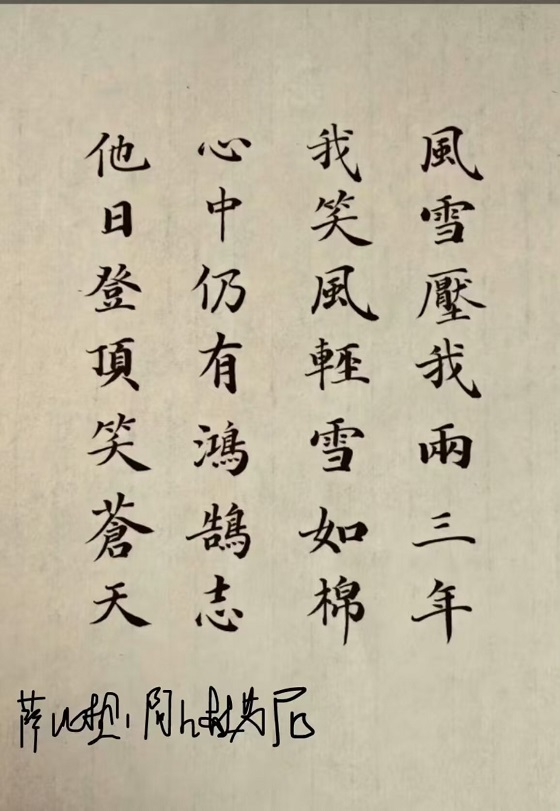 風雪壓我兩三年
我笑風輕雪如棉
心中仍有鴻鵠志
他日登頂笑蒼天